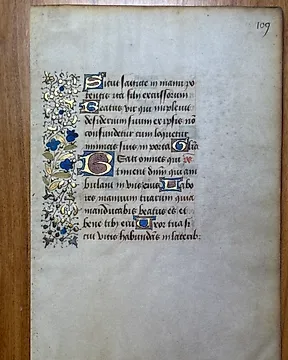 109
Sicut sagitte in manu po
tentis ita filii excussorum
Beatus vir qui implevit
desiderium suum ex ipsis nō
confundetur cum loquetur
inimicis suis in porta Glīa
Beati omnes qui
timent dnm̄ qui am
bulant in viis eius Labo
res manuum tuarum quia
manducabis beatus es et
bene tibi erit Uxor tua si
cut vitis habundās in laterib;